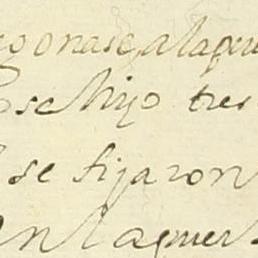 egonase a la pue
ose hizo tres
se fijaron
en la puer